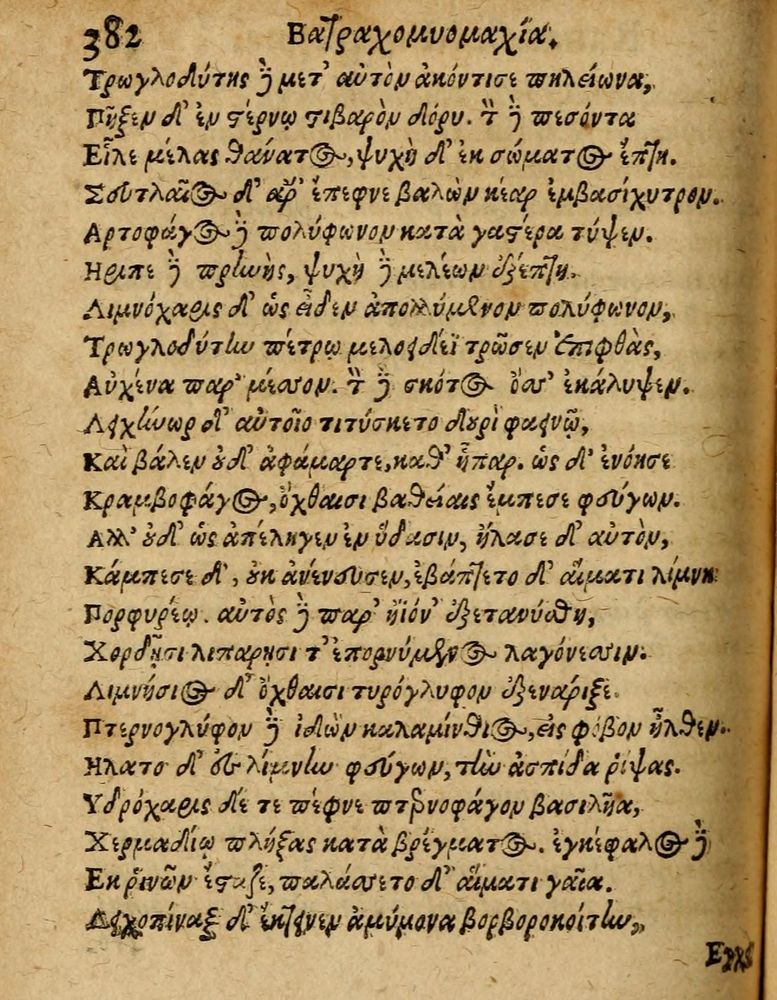 382 Βατραχομυομαχία.
Τρωγλοδύτης δὲ μετ' αὐτὸν ἀκόντισε πηλείωνα,
Πῆξεν δ' ἐν στέρνῳ στιβαρὸν δόρυ. τὸν δὲ πεσόντα
Εἷλε μέλας θάνατος, ψυχὴ δ' ἐκ σώματος ἔπτη.
Σευτλαῖος δ' ἄρ' ἔπεφνε βαλὼν κέαρ ἐμβασίχυτρον.
Αρτοφάγος δὲ πολύφωνον κατὰ γαστέρα τύψεν.
Ηριπε δὲ πρηνὴς, ψυχὴ δὲ μελέων ἐξέπτη.
Λιμνόχαρις δ' ὡς εἶδεν ἀπολλύμενον πολύφωνον,
Τρωγλοδύτην πέτρῳ μυλοειδέϊ τρῶσεν ἐπιφθὰς,
Αὐχένα παρ' μέσσον. τὸν δὲ σκότος ὄσσ' ἐκάλυψεν.
Λειχήνωρ δ' αὐτοῖο τιτύσκετο δουρὶ φαεινῷ,
Καὶ βάλεν οὐδ' ἀφάμαρτε, καθ' ἧπαρ. ὡς δ' ἐνόησε
Κραμβοφάγος, ὄχθαισι βαθείαις ἔμπεσε φεύγων.
Αλλ' οὐδ' ὡς ἀπέληγεν ἐν ὕδασιν, ἤλασε δ' αὐτὸν,
Κάππεσε δ', οὐκ ἀνένευσεν, ἐβάπτετο δ' αἵματι λίμνη
Πορφυρέῳ. αὐτὸς δὲ παρ' ἠϊόν' ἐξετανύσθη,
Χορδῇσι λιπαρῇσι τ' ἐπορνύμενος λαγόνεσσιν.
Λιμνήσιος δ' ὄχθαισι τυρόγλυφον ἐξενάριξε.
Πτερνογλύφον δὲ ἰδὼν καλαμίνθιος, εἰς φόβον ἦλθεν.
Ηλατο δ' ἐς λίμνην φεύγων, τὴν ἀσπίδα ῥίψας.
Υδρόχαρις δέ τε πέφνε πτερνοφάγον βασιλῆα,
Χερμαδίῳ πλήξας κατὰ βρέγματος. ἐγκέφαλος δὲ
Εκ ῥινῶν ἔσταζε, παλάσσετο δ' αἵματι γαῖα.
Λειχοπίναξ δ' ἔκτεινεν ἀμύμονα βορβοροκοίτην,